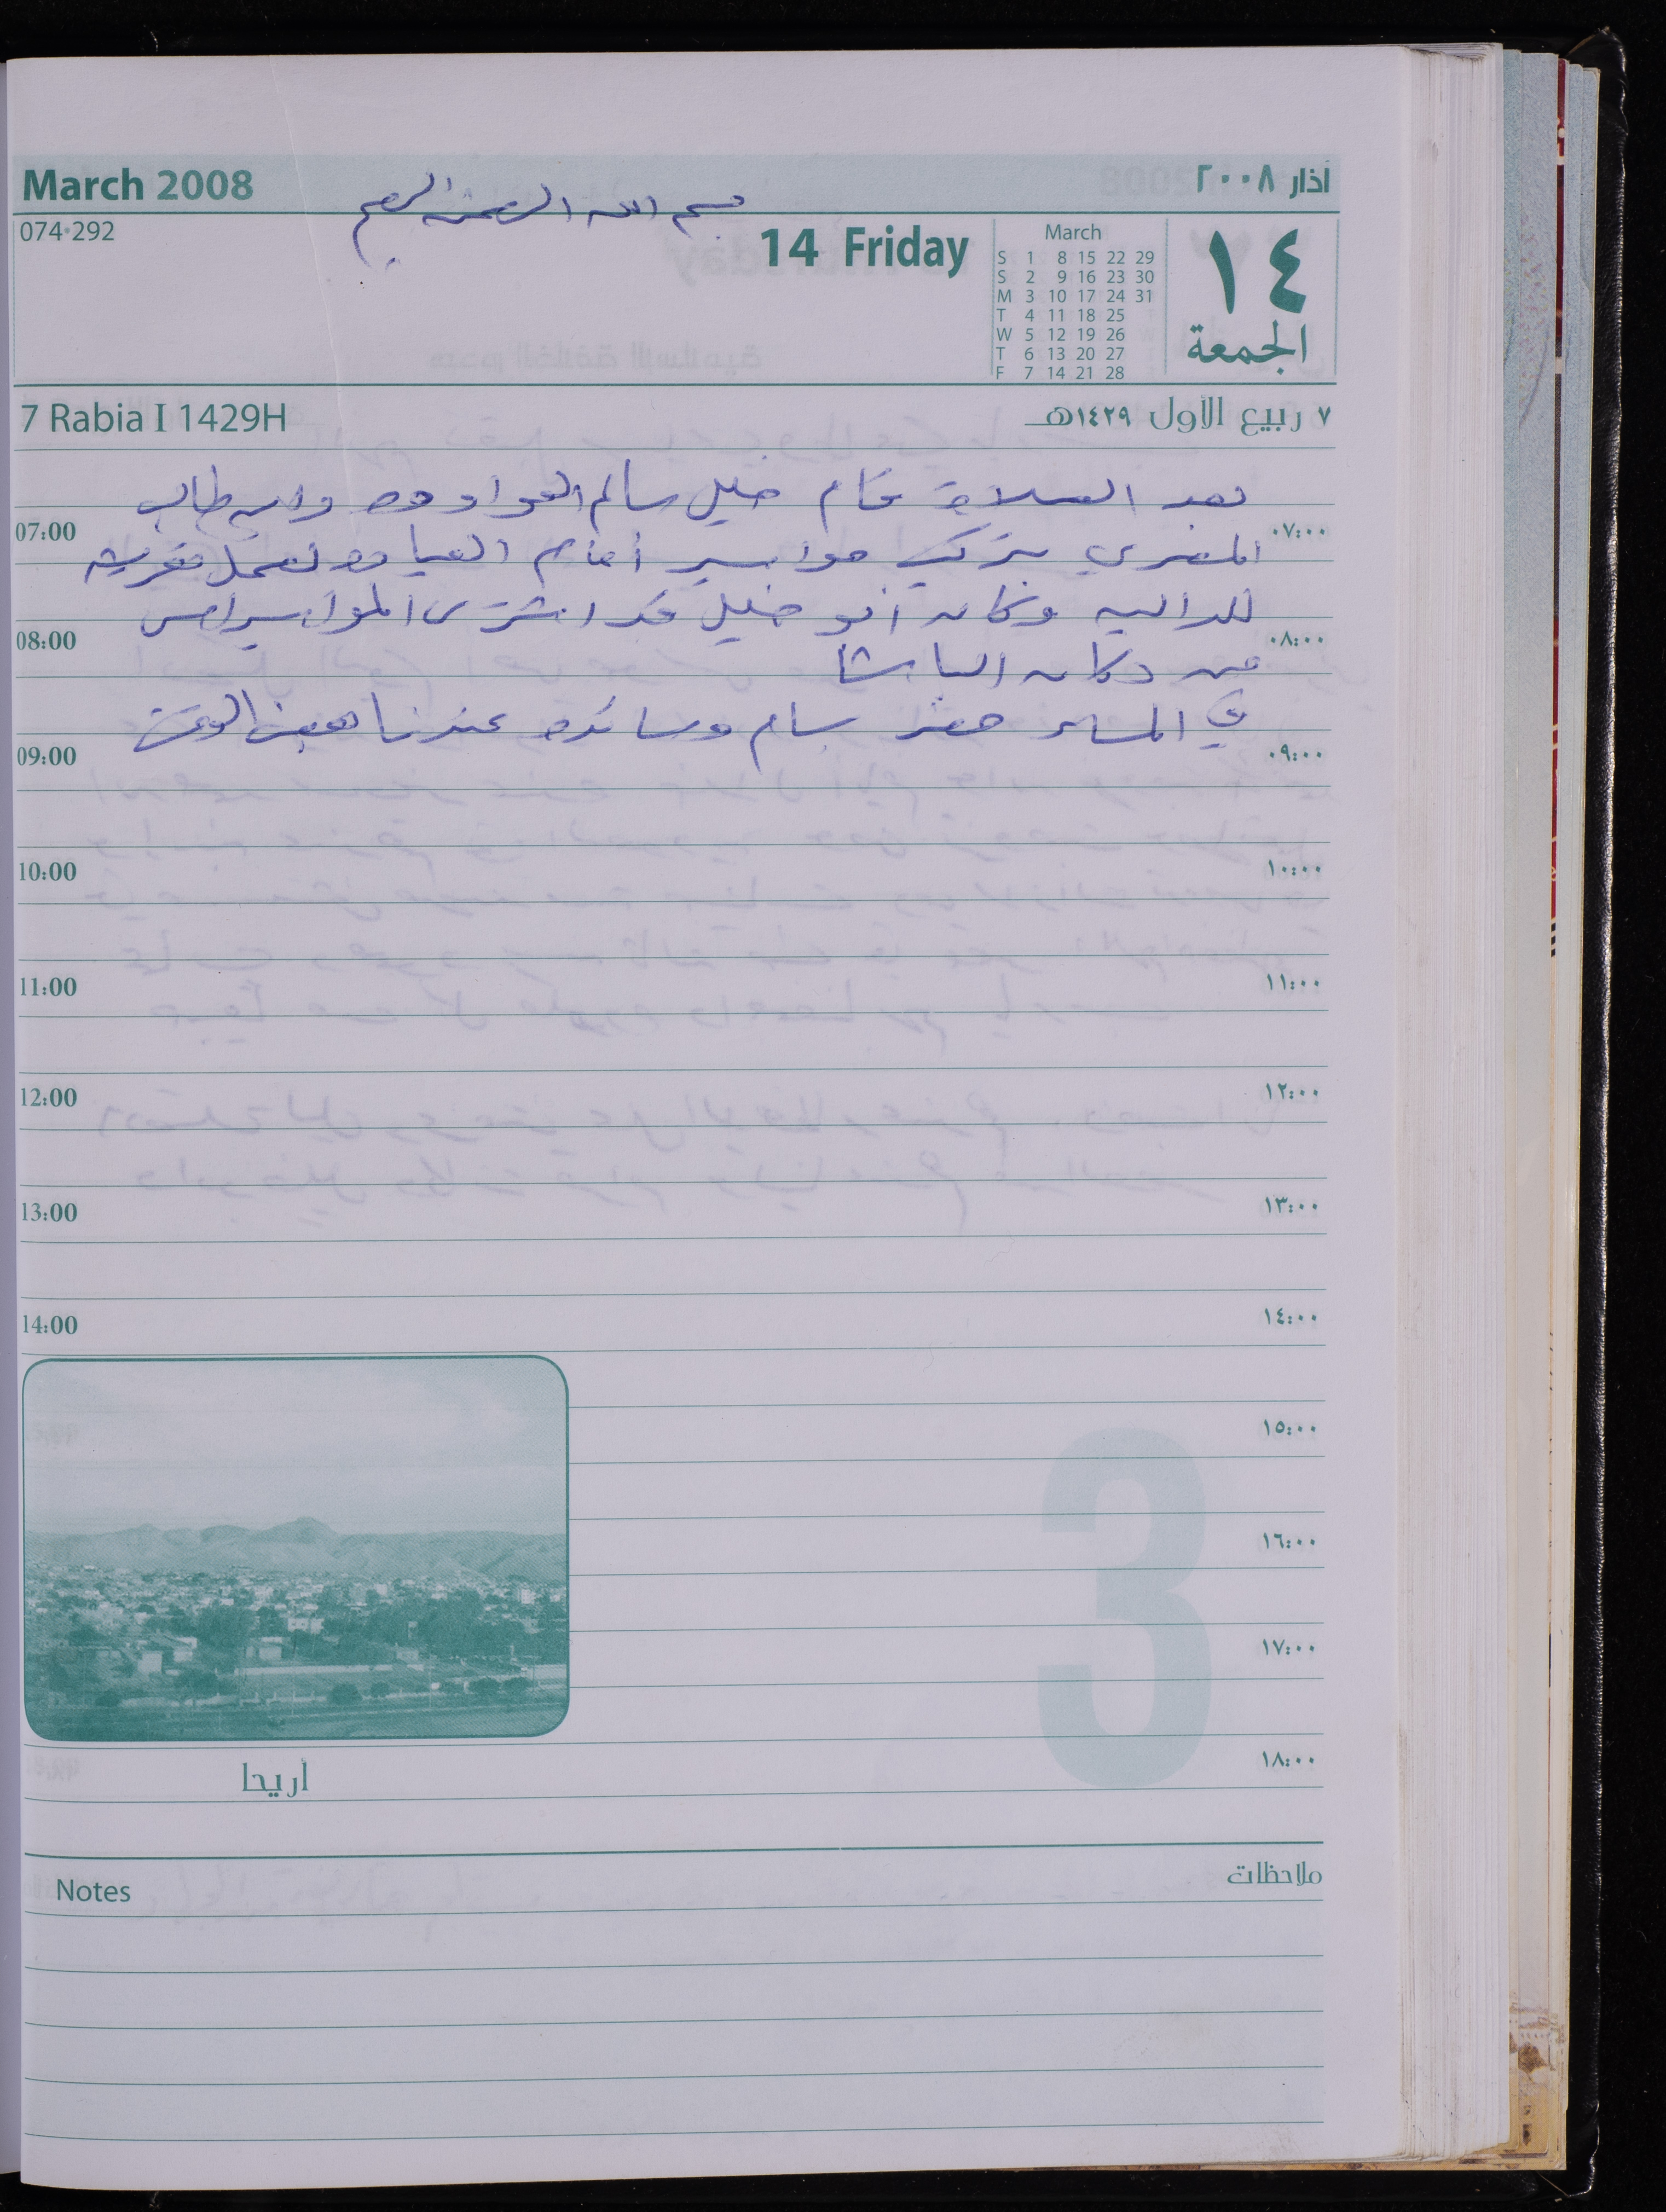 March 2008
أذار ٢٠٠٨
بسم الله الرحمن الرحيم
074-292
14 Friday
March
S 1 8 15 22 29
S 2 9 16 23 30
M 3 10 17 24 31
T 4 11 18 25
W 5 12 19 26
T 6 13 20 27
F 7 14 21 28
١٤
الجمعة
7 Rabia I 1429H
٧ ربيع الأول ١٤٢٩هـ
بعد الصلاة قام خليل سالم العواوده وابن طالب
07:00 ٠٧:٠٠
المصري بتركيب مواسير أمام العياده لعمل معرش
للداليه وكان ابو خليل قد اشترى المواسير امس
08:00 ٠٨:٠٠
من دكان الباشا
في المساء حضر بسام وسائده عندنا بعض الوقت
09:00 ٠٩:٠٠
10:00 ١٠:٠٠
11:00 ١١:٠٠
12:00 ١٢:٠٠
13:00 ١٣:٠٠
14:00 ١٤:٠٠
١٥:٠٠
3
١٦:٠٠
١٧:٠٠
١٨:٠٠
أريحا
Notes
ملاحظات